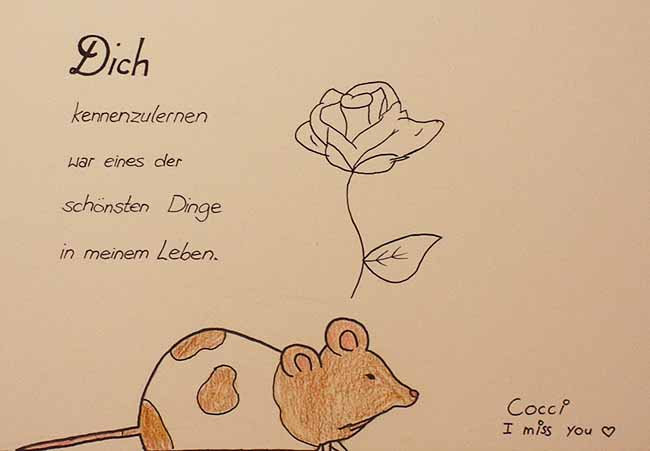 Dich
kennenzulernen
war eines der
schönsten Dinge
in meinem Leben.
Cocci
I miss you ♡